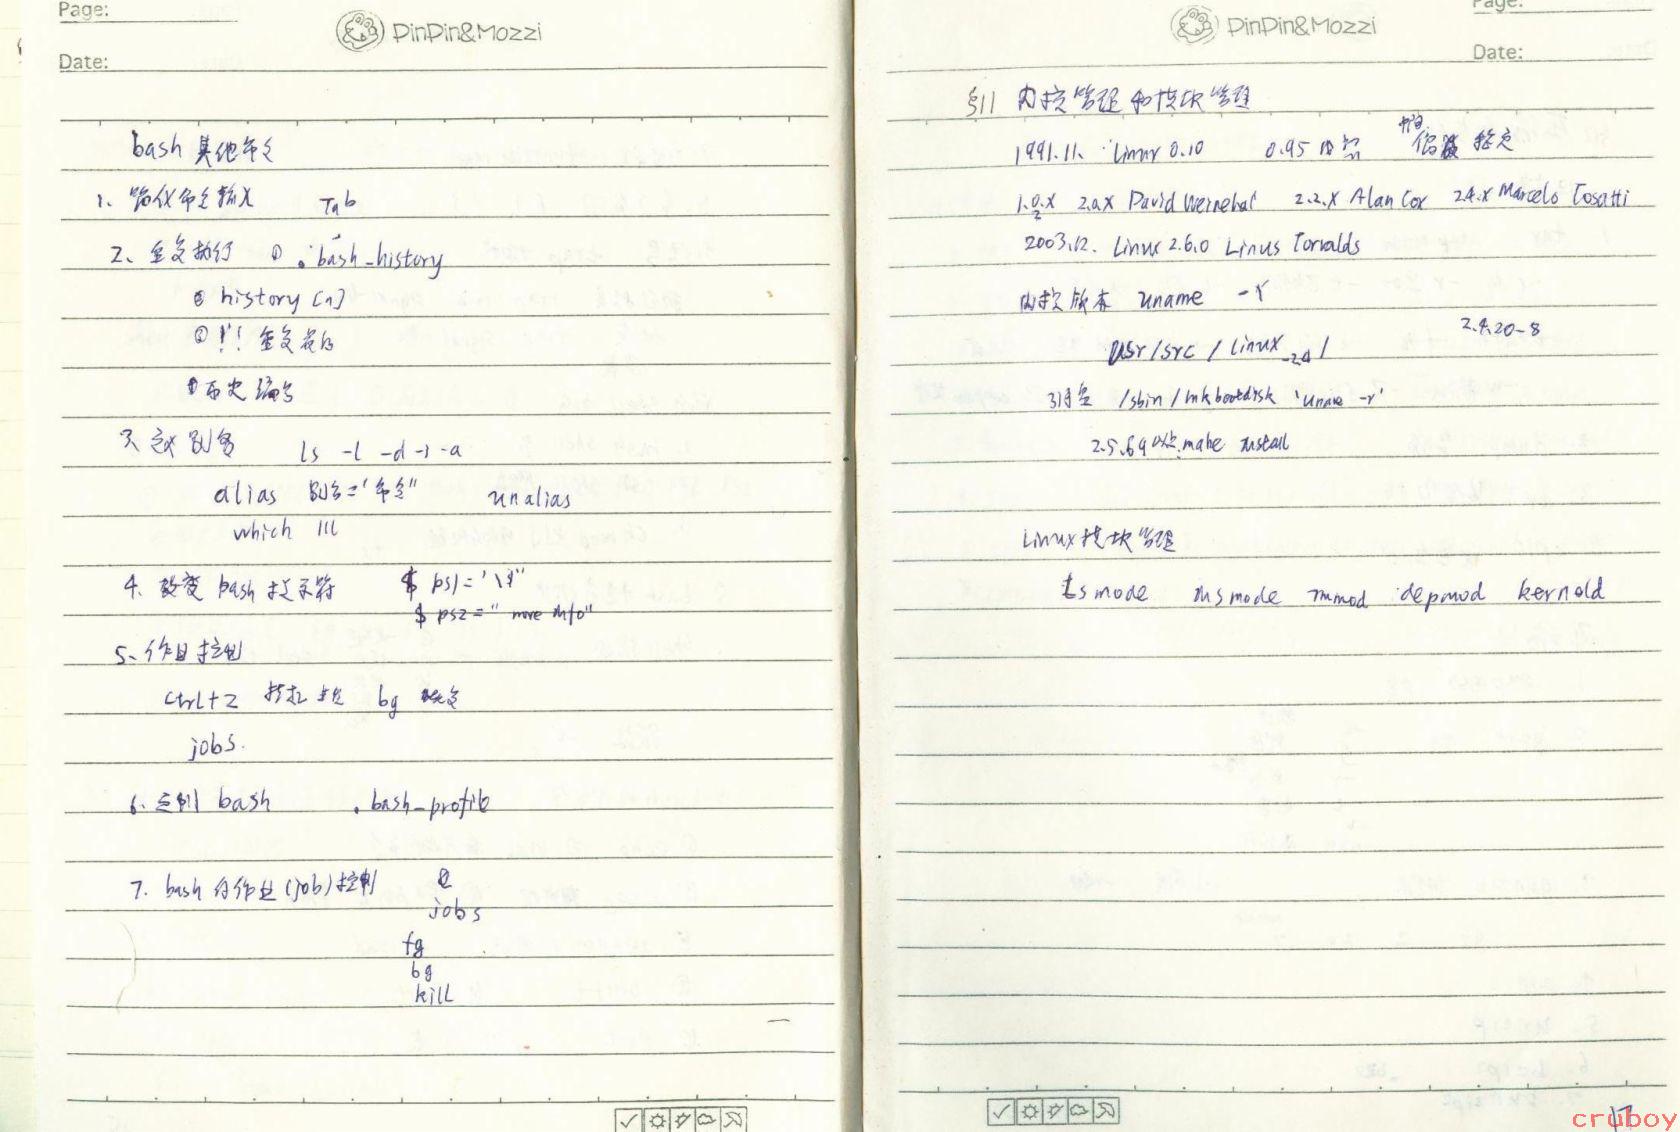 Page:
PinPin&Mozzi
Date:
bash 其他命令
1、简化命令输入 Tab
2、重复执行 ① .bash_history
② history [n]
③ !! 重复最后
④ 历史编号
3、定义别名 ls -l -d -i -a
alias 别名='命令" unalias
which lll
4、改变 bash 提示符 $ ps1='\$"
$ ps2=" more info"
5、作业控制
ctrl+z 挂起 bg 恢复
jobs.
6、定制 bash .bash_profile
7、bash 的作业(job)控制 &
jobs
fg
bg
kill
Page:
PinPin&Mozzi
Date:
§11 内核管理和模块管理
1991.11. Linux 0.10 0.95 内核 稳定
1.0.x 2.0.x David Weinehal 2.2.x Alan Cox 2.4.x Marcelo Tosatti
2003.12. Linux 2.6.0 Linus Torvalds
内核版本 uname -r
2.4.20-8
usr/src/linux-2.4/
引导盘 /sbin/mkbootdisk 'uname -r'
2.5.69以後 make install
Linux模块管理
lsmode insmode rmmod depmod kernold
17
cruboy